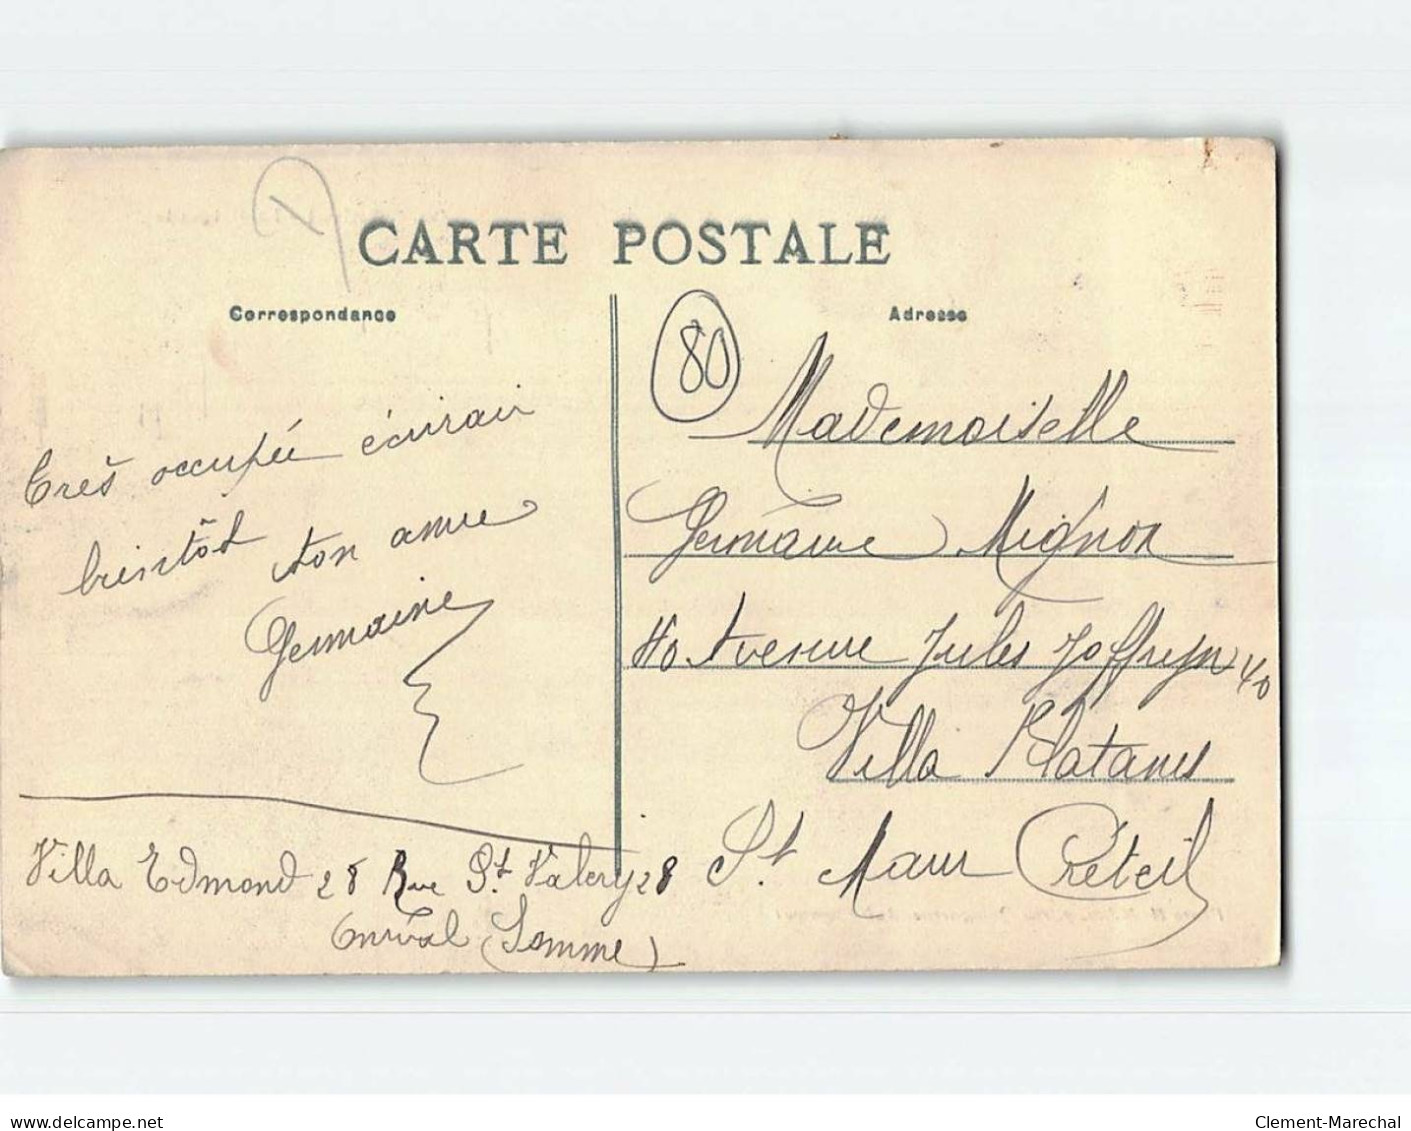 CARTE POSTALE
Correspondance
Adresse
80
Très occupée écrirai
bientôt
ton amie
Germaine
Villa Edmond 28 Rue St Valery 28
Onival (Somme)
Mademoiselle
Germaine Mignon
40 Avenue Jules Joffryn 40
Villa Platanes
St Maur Créteil
www.delcampe.net
Clement-Marechal